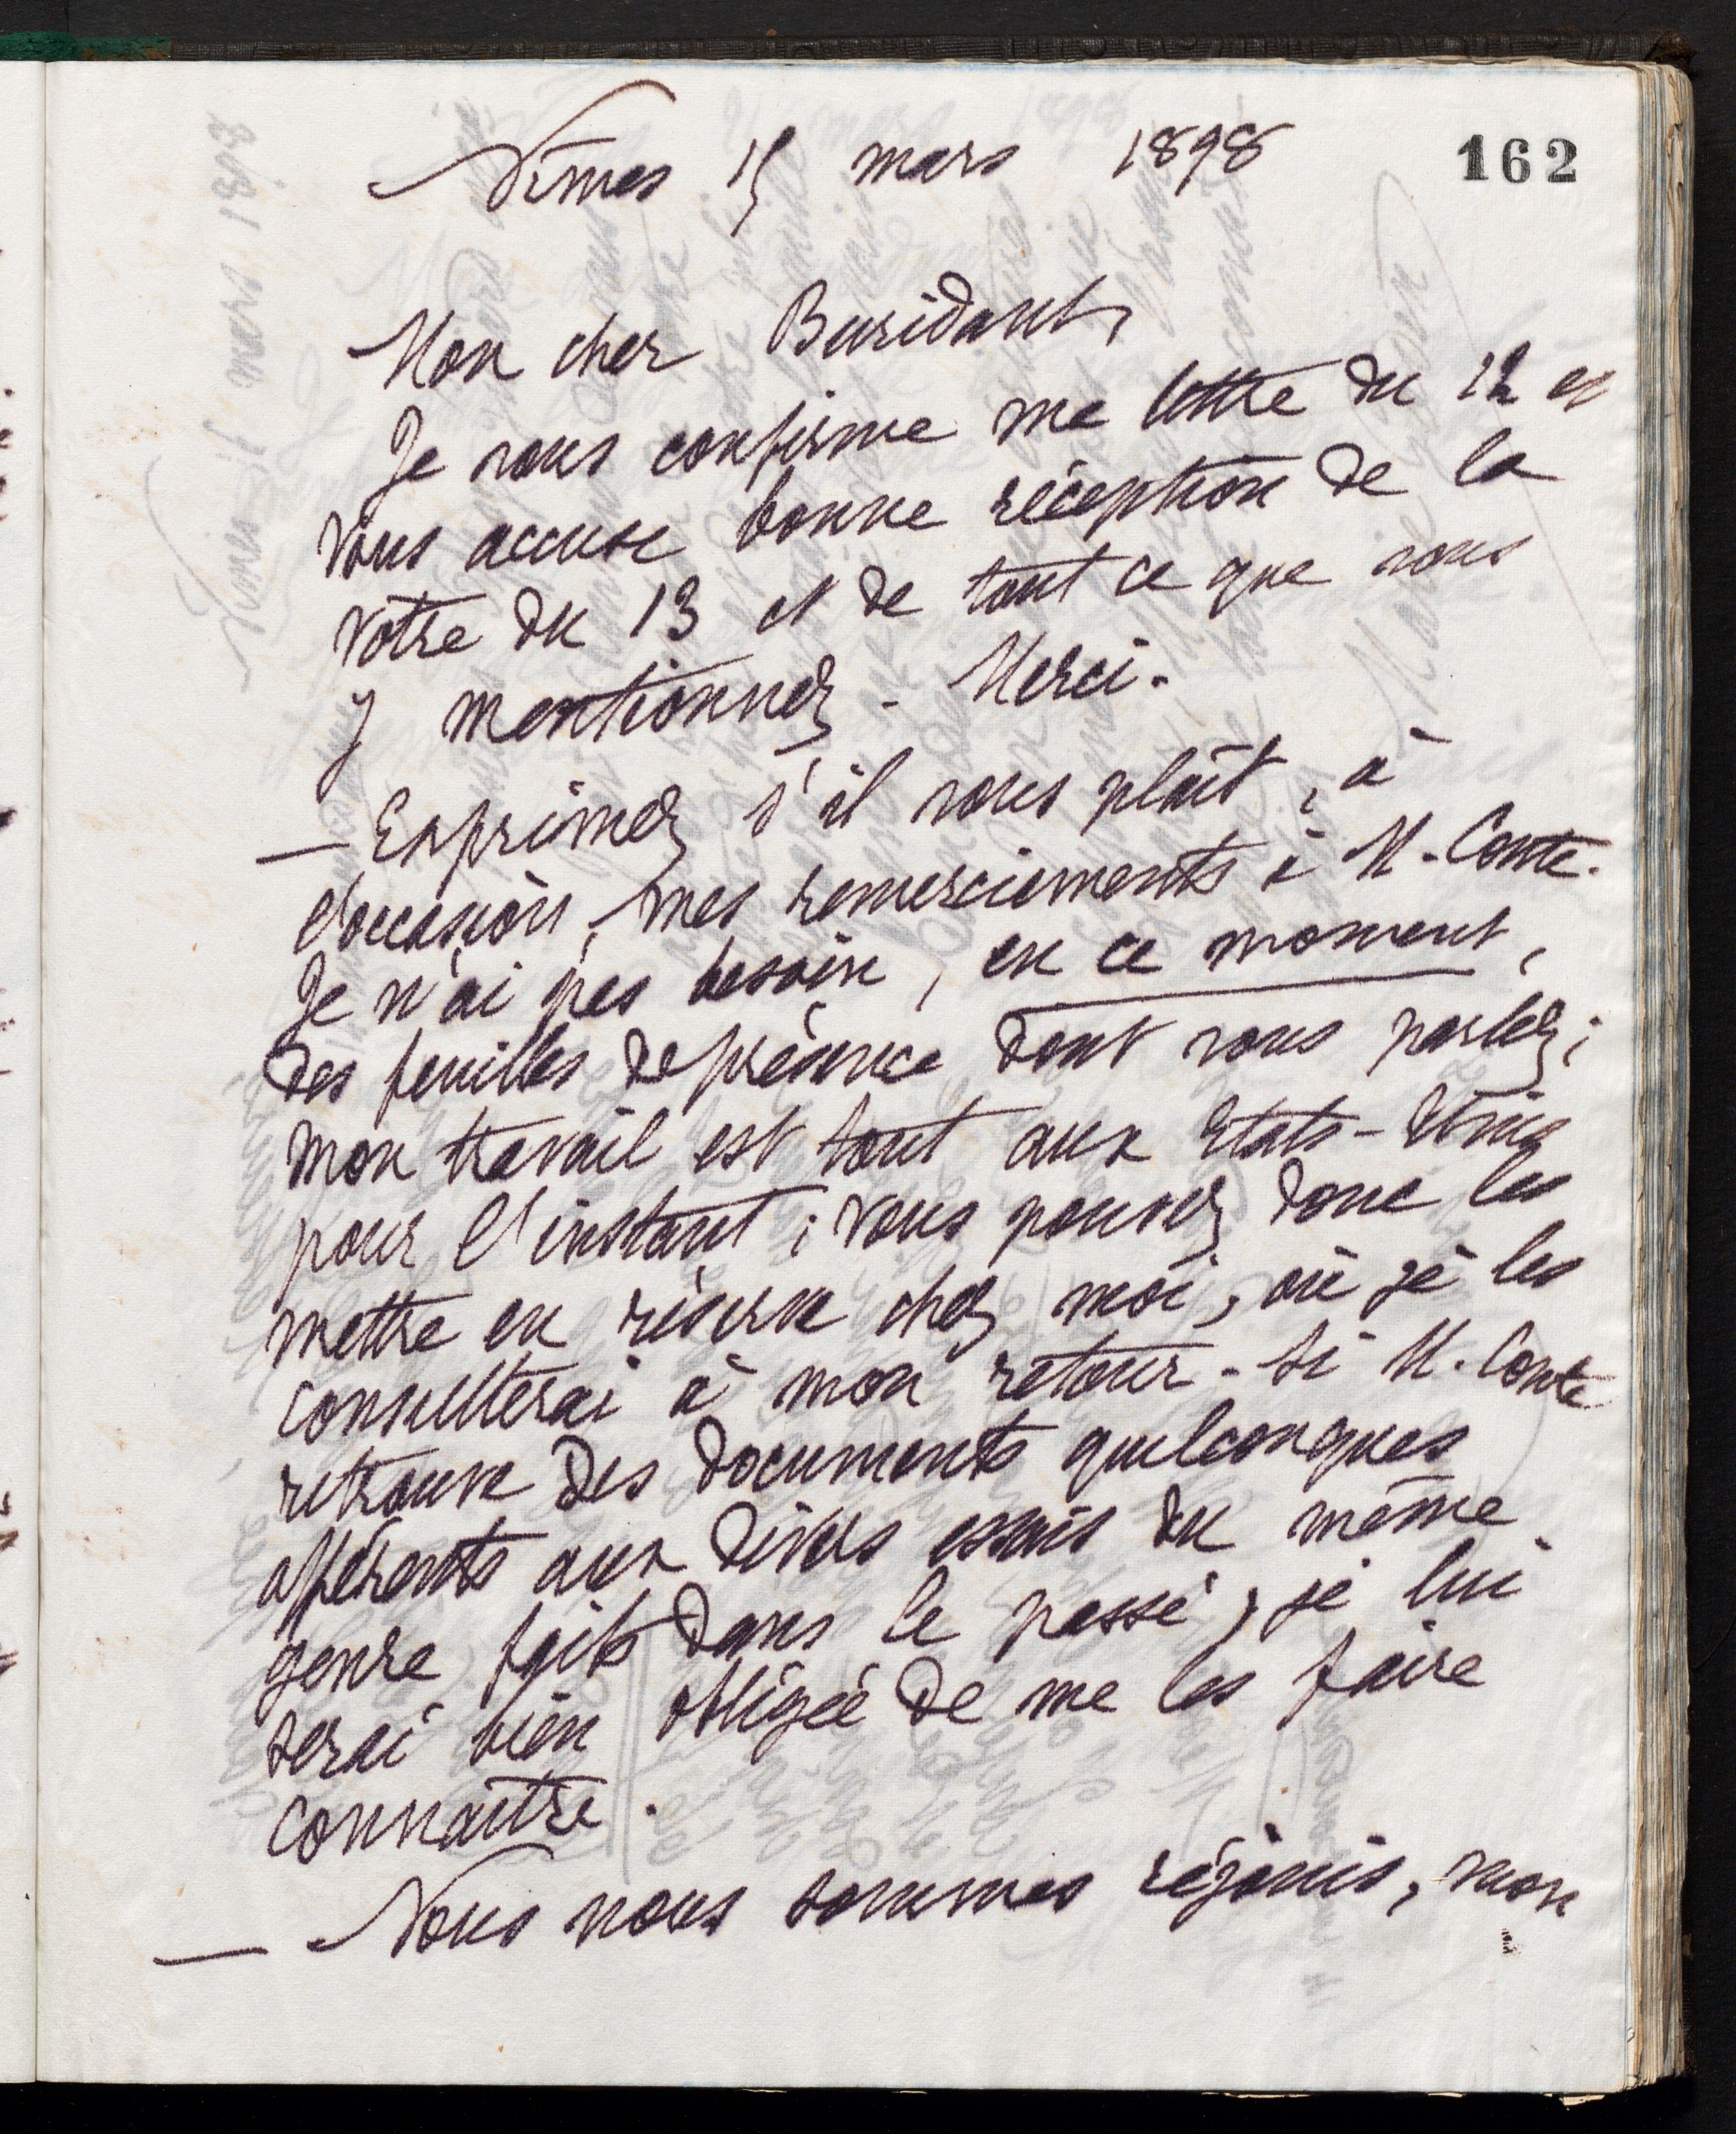 162
Nîmes 15 mars 1898
Mon cher Buridant,
Je vous confirme ma lettre du 12 et
vous accuse bonne réception de la
vôtre du 13 et de tout ce que vous
y mentionnez. Merci.
— Exprimez s'il vous plaît, à
l'occasion, mes remerciements à M. Conte.
Je n'ai pas besoin, en ce moment,
des feuilles de présence dont vous parlez;
mon travail est tout aux Etats-Unis
pour l'instant; vous pouvez donc les
mettre en réserve chez moi, où je les
consulterai à mon retour. Si M. Conte
retrouve des documents quelconques
afférents aux divers essais du même
genre faits dans le passé, je lui
serai bien obligée de me les faire
connaître.
— Nous nous sommes réjouis, mon